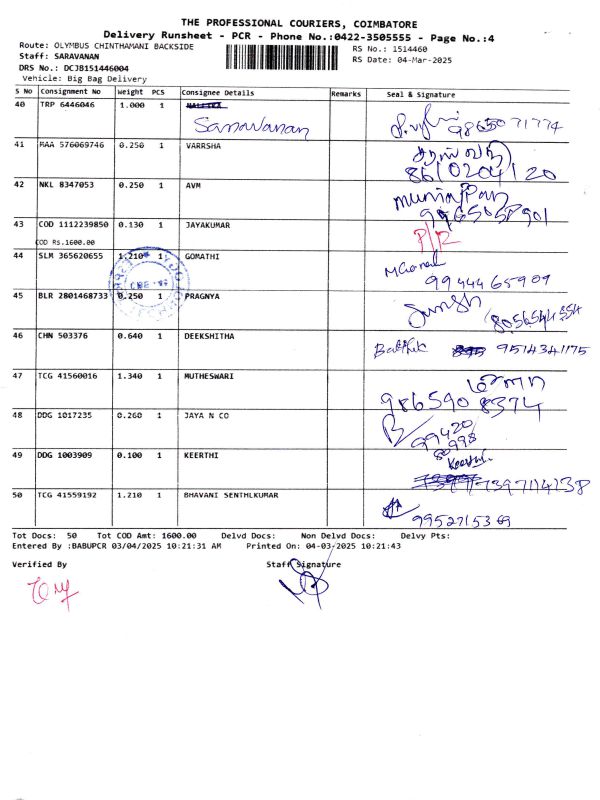 THE PROFESSIONAL COURIERS, COIMBATORE
Delivery Runsheet - PCR - Phone No.:0422-3505555 - Page No.:4
Route: OLYMBUS CHINTHAMANI BACKSIDE
RS No.: 1514460
Staff: SARAVANAN
RS Date: 04-Mar-2025
DRS No.: DCJB151446004
Vehicle: Big Bag Delivery
S No Consignment No Weight PCS Consignee Details Remarks Seal & Signature
40 TRP 6446046 1.000 1
Saravanan 9865071774
41 RAA 576069746 0.250 1 VARRSHA
8610204120
42 NKL 8347053 0.250 1 AVM
43 COD 1112239850 0.130 1 JAYAKUMAR
COD Rs.1600.00
44 SLM 365620655 1.210 1 GOMATHI
9944465909
45 BLR 2801468733 0.250 1 PRAGNYA
46 CHN 503376 0.640 1 DEEKSHITHA
9514341175
47 TCG 41560016 1.340 1 MUTHESWARI
9865908374
48 DDG 1017235 0.260 1 JAYA N CO
49 DDG 1003909 0.100 1 KEERTHI
Keerthi
50 TCG 41559192 1.210 1 BHAVANI SENTHLKUMAR
9952715369
Tot Docs: 50 Tot COD Amt: 1600.00 Delvd Docs: Non Delvd Docs: Delvy Pts:
Entered By :BABUPCR 03/04/2025 10:21:31 AM Printed On: 04-03-2025 10:21:43
Verified By Staff Signature